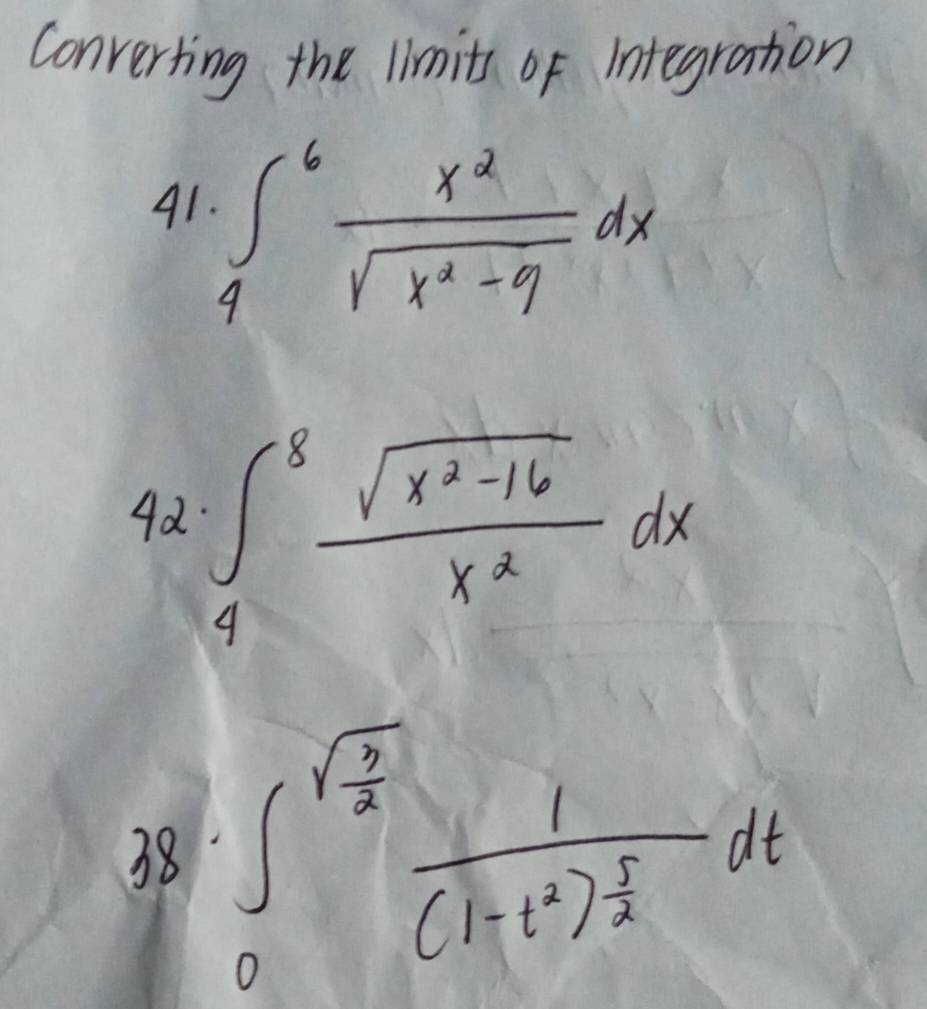 Converting the limits of Integration
41. ∫₄⁶ x² / √(x² - 9) dx
42. ∫₄⁸ √(x² - 16) / x² dx
38. ∫₀^√(3/2) 1 / (1 - t²)^(5/2) dt